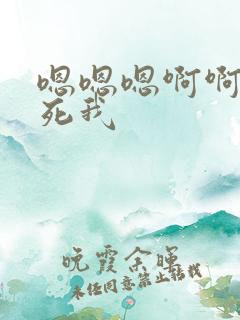 嗯嗯嗯啊啊
死我
晚霞余晖
未经同意禁止转载